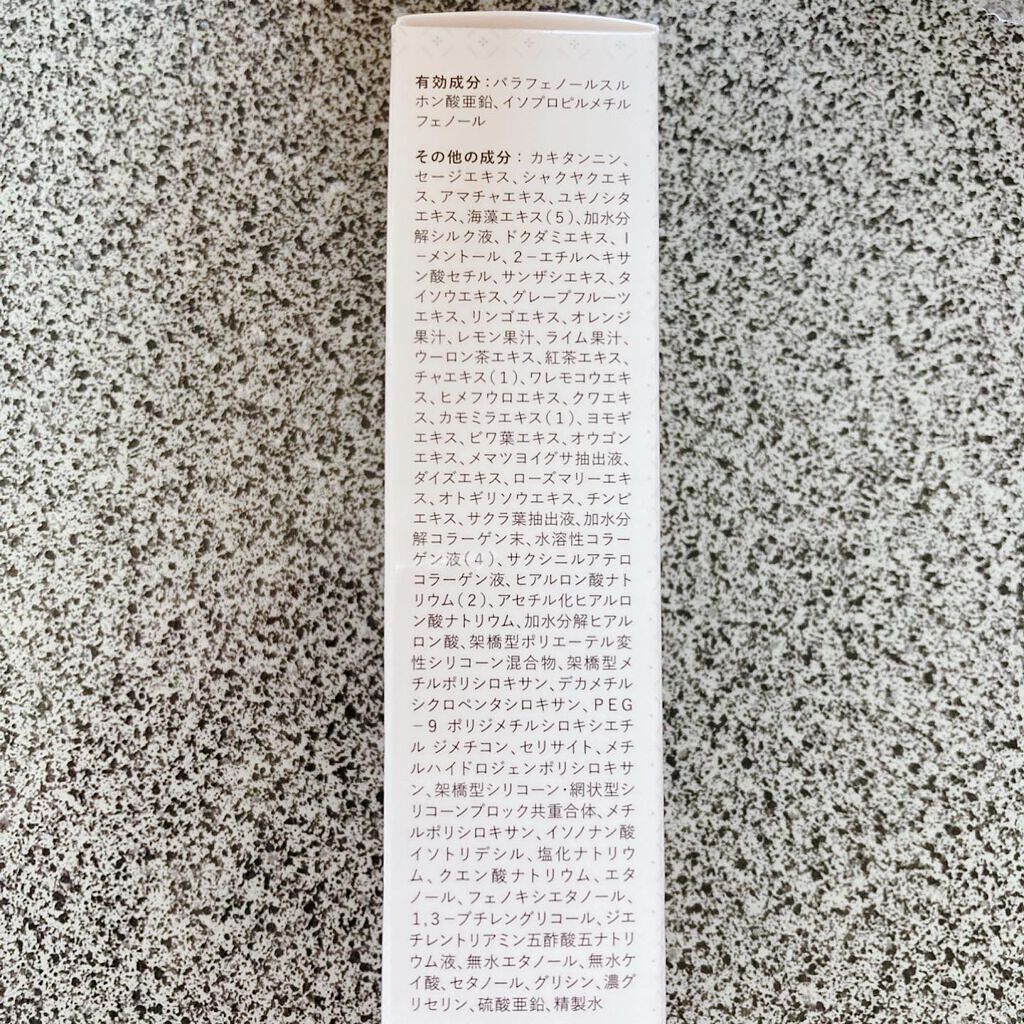 有効成分：パラフェノールスル
ホン酸亜鉛、イソプロピルメチル
フェノール
その他の成分：カキタンニン、
セージエキス、シャクヤクエキ
ス、アマチャエキス、ユキノシタ
エキス、海藻エキス(5)、加水分
解シルク液、ドクダミエキス、l
－メントール、2－エチルヘキサ
ン酸セチル、サンザシエキス、タ
イソウエキス、グレープフルーツ
エキス、リンゴエキス、オレンジ
果汁、レモン果汁、ライム果汁、
ウーロン茶エキス、紅茶エキス、
チャエキス(1)、ワレモコウエキ
ス、ヒメフウロエキス、クワエキ
ス、カモミラエキス(1)、ヨモギ
エキス、ビワ葉エキス、オウゴン
エキス、メマツヨイグサ抽出液、
ダイズエキス、ローズマリーエキ
ス、オトギリソウエキス、チンピ
エキス、サクラ葉抽出液、加水分
解コラーゲン末、水溶性コラー
ゲン液(4)、サクシニルアテロ
コラーゲン液、ヒアルロン酸ナト
リウム(2)、アセチル化ヒアルロ
ン酸ナトリウム、加水分解ヒアル
ロン酸、架橋型ポリエーテル変
性シリコーン混合物、架橋型メ
チルポリシロキサン、デカメチル
シクロペンタシロキサン、PEG
－9 ポリジメチルシロキシエチ
ル ジメチコン、セリサイト、メチ
ルハイドロジェンポリシロキサ
ン、架橋型シリコーン・網状型シ
リコーンブロック共重合体、メチ
ルポリシロキサン、イソノナン酸
イソトリデシル、塩化ナトリウ
ム、クエン酸ナトリウム、エタ
ノール、フェノキシエタノール、
1,3－ブチレングリコール、ジエ
チレントリアミン五酢酸五ナトリ
ウム液、無水エタノール、無水ケ
イ酸、セタノール、グリシン、濃グ
リセリン、硫酸亜鉛、精製水